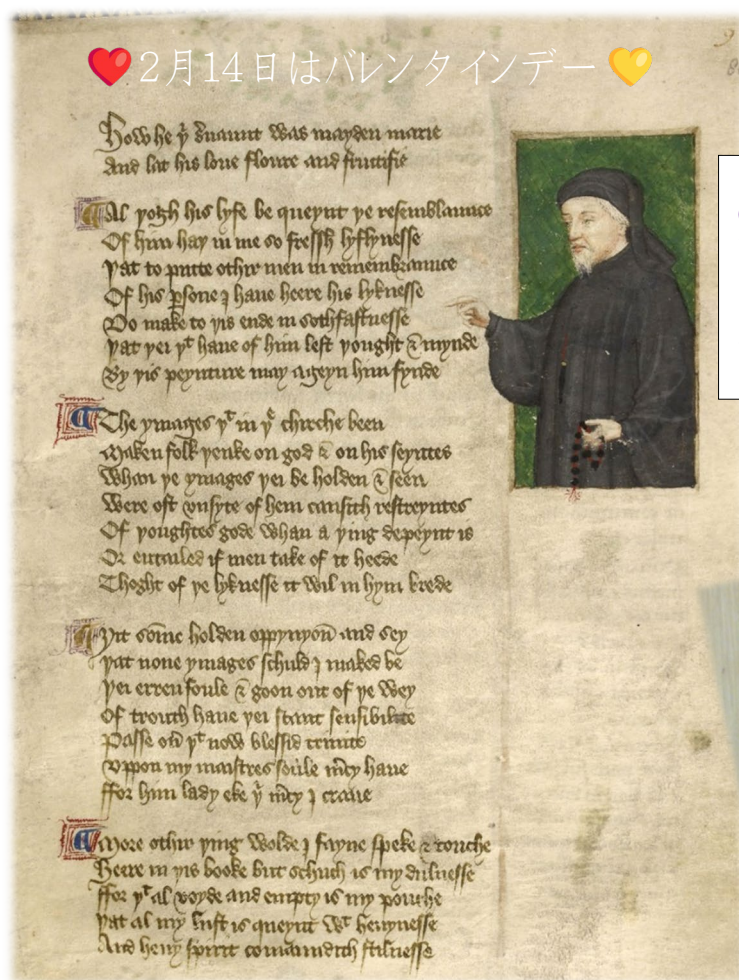 ❤️2月14日はバレンタインデー💛
How he þᵘ seruaunt was mayden marie
And lat his loue floure and fructifie
Al þogh his lyfe be queynt þe resemblaunce
Of him haþ in me so fressh lyflynesse
Þat to putte othir men in remembraunce
Of his ꝑsone I haue heere his lyknesse
Do make to þis ende in sothfastnesse
Þat þei þᵗ haue of him left þought & mynde
By þis peynture may ageyn him fynde
The ymages þᵗ in þᵉ chirche been
Maken folk þenke on god & on his seyntes
Whan þe ymages þei be holden & seen
Were oft vnsyte of hem causith restreyntes
Of þoughtes gode whan a þing depeynt is
Or entailed if men take of it heede
Thoght of þe lyknesse it wil in hym brede
Ȝit som̄e holden oppynyoū and sey
Þat none ymages schuld I maked be
Þei erren foule & goon out of þe wey
Of trouth haue þei scant sensibilite
Passe oū þᵗ now blessid trinite
Vppon my maistres soule m̄cy haue
ffor him lady eke þⁱ m̄cy I craue
More othir þing wolde I fayne speke & touche
Heere in þis booke but schuch is my dulnesse
ffor þᵗ al voyde and empty is my pouche
Þat al my lust is queynt wᵗ heuynesse
And heuy spirit comaundith stilnesse